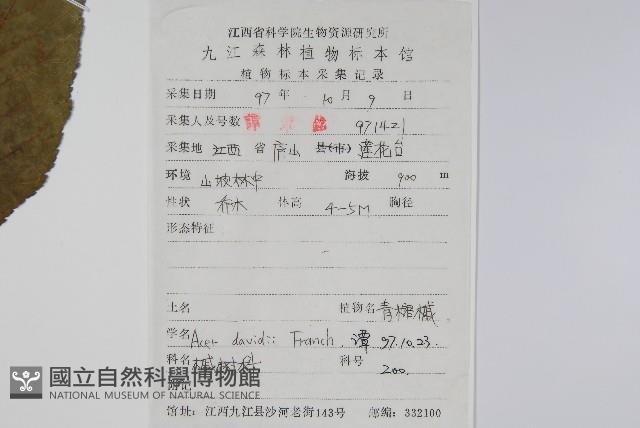 江西省科学院生物资源研究所
九江森林植物标本馆
植物标本采集记录
采集日期 97 年 10 月 9 日
采集人及号数 譚 971421
采集地 江西 省 庐山 县(市) 莲花台
环境 山坡林中 海拔 900 m
性状 乔木 体高 4-5M 胸径
形态特征
土名 植物名 青榨槭
学名 Acer davidii Franch. 譚 97.10.23.
科名 槭树科 科号 200.
附记
國立自然科學博物館
NATIONAL MUSEUM OF NATURAL SCIENCE
馆址:江西九江县沙河老街143号 邮编:332100